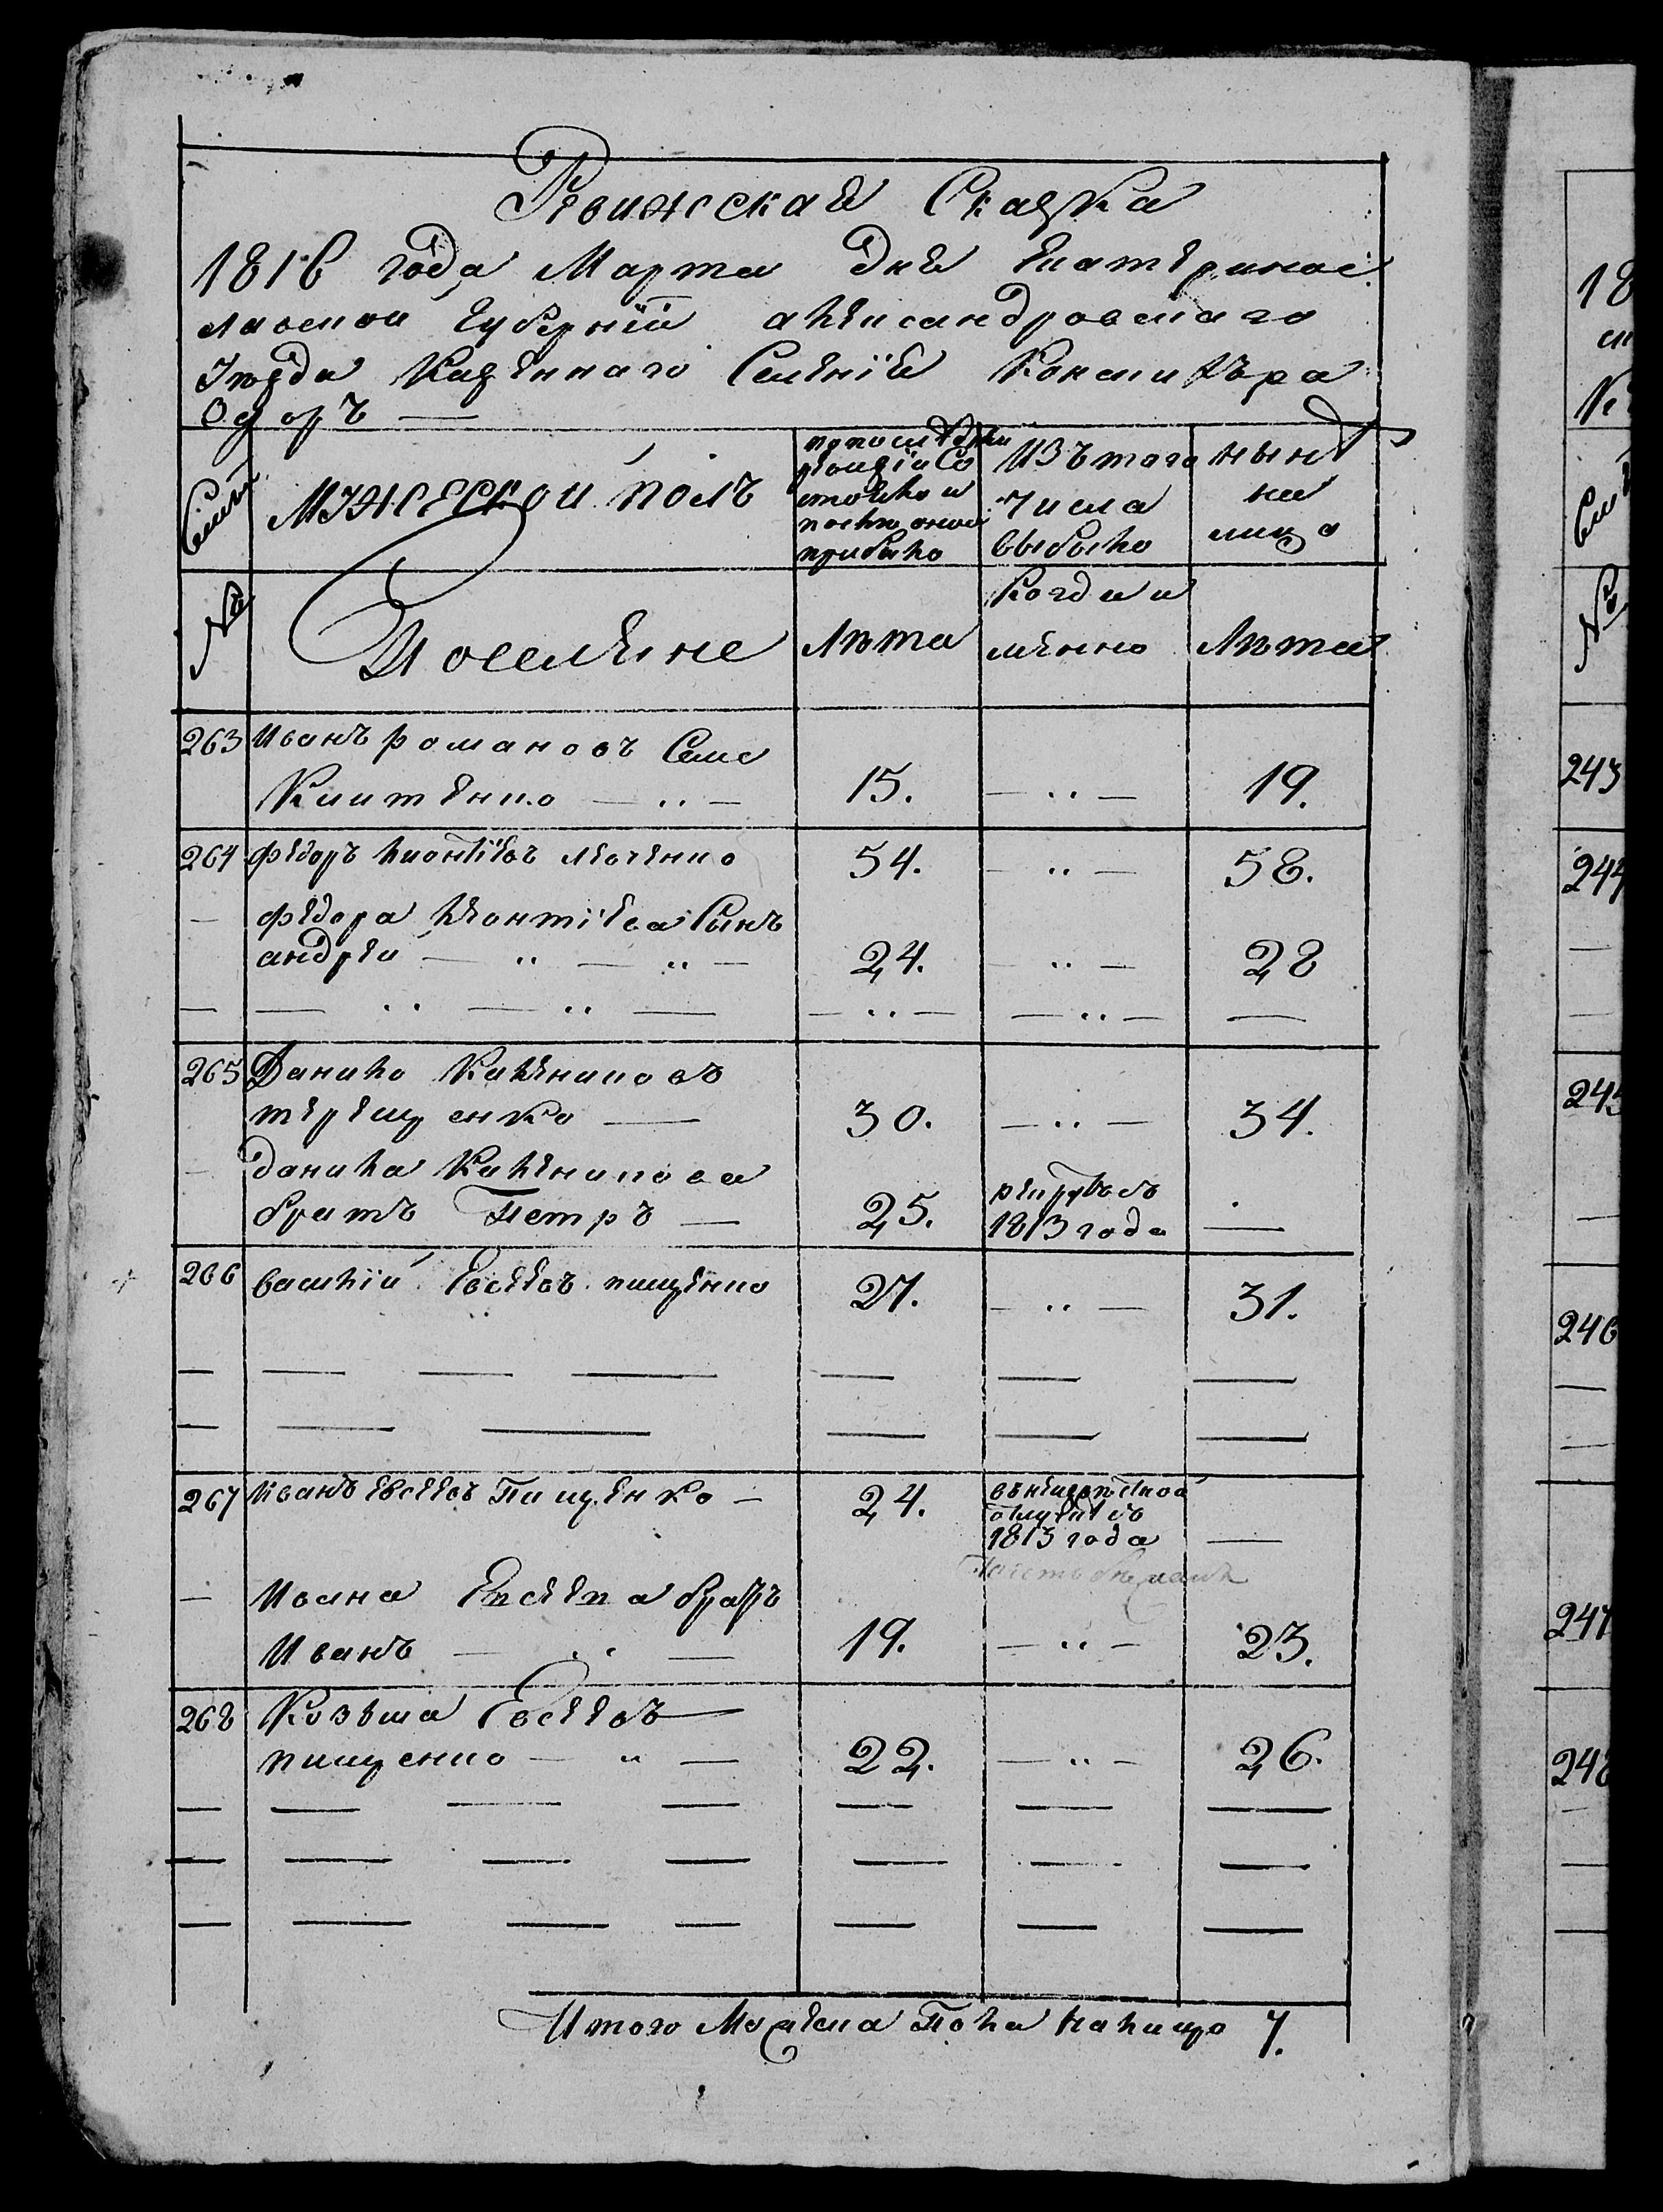 Ревижская Сказка
1816 года Марта дня Екатеринос
лавской Губернiи александровскаго
Уезда Казеннаго Селенiя Конски Къра
Оздоръ —
Семьи
МУЖЕСКОЙ ПОЛЪ
по последней
ревизiи Со
стояло и
после оной
прибыло
ИЗЪ того
числа
выбыло
нынѣ
на
лицо
№
Поселяне
Лѣта
Когда и
менно
Лѣта
263 Иванъ романовъ Семе
— ·· — 15. — ·· — 19.
264 Федоръ Леонтiевъ 54. — ·· — 58.
— Федора Леонтiева Сынъ
андрей — ·· — ·· — 24. — ·· — 28
— — ·· — ·· — — ·· — — ·· — —
265 Данило Калениковъ
терещенко — 30. — ·· — 34.
— данила Каленикова
братъ Петръ — 25. рекрутъ съ 1813 года —
266 василiй Евсеевъ пищенко 27. — ·· — 31.
— — — — — — —
— — — — — —
267 Иванъ евсеевъ Пищенко — 24. въ неизвестной
отлучке съ
1813 года —
— Ивана Евсеева братъ
Иванъ — ·· — 19. — ·· — 23.
268 Козьма Евсеевъ
пищенко — ·· — 22. — ·· — 26.
— — — — — — —
— — — — — — —
— — — — — — —
Итого Мужеска Пола Налицо 7.
18
243
244
245
246
247
248